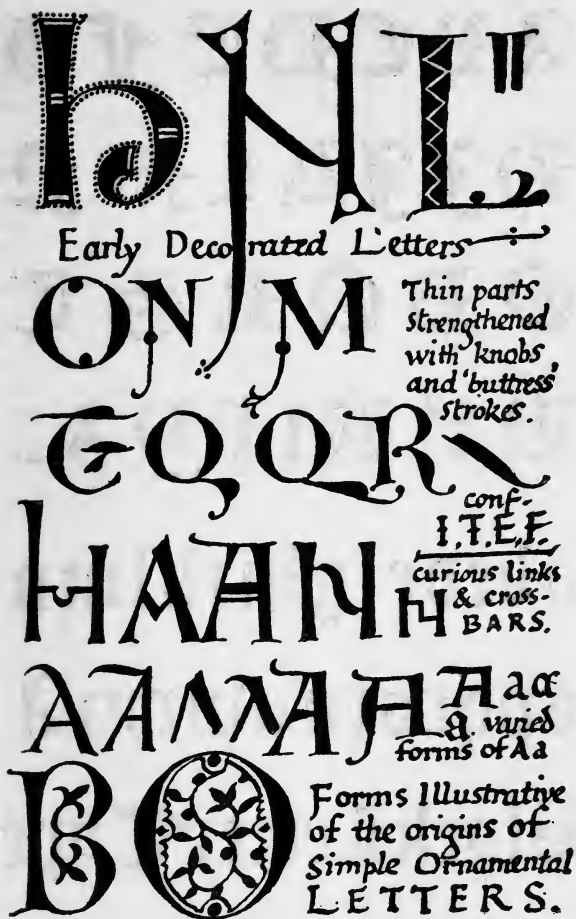 h N L"
Early Decorated Letters
O N M
Thin parts
strengthened
with knobs,
and 'buttress'
strokes.
T Q Q R
conf-
I.T.E.F.
H A A N
curious links
& cross-
BARS.
H
A A A A A A A a æ
a. varied
forms of A a
B O
Forms Illustrative
of the origins of
Simple Ornamental
LETTERS.